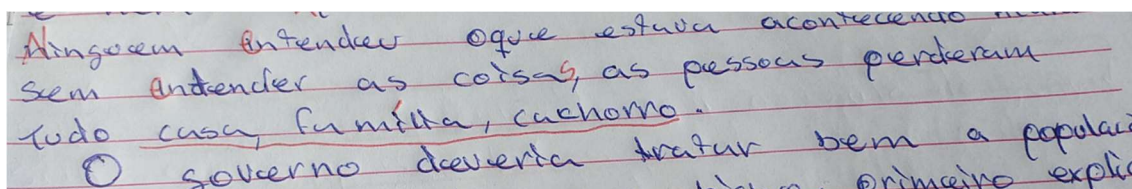 Ningocem entendeu oque estava acontecendo
sem entender as coisas, as pessoas perderam
tudo casa, família, cachorro.
O governo deveria tratar bem a populaç
primeiro explic